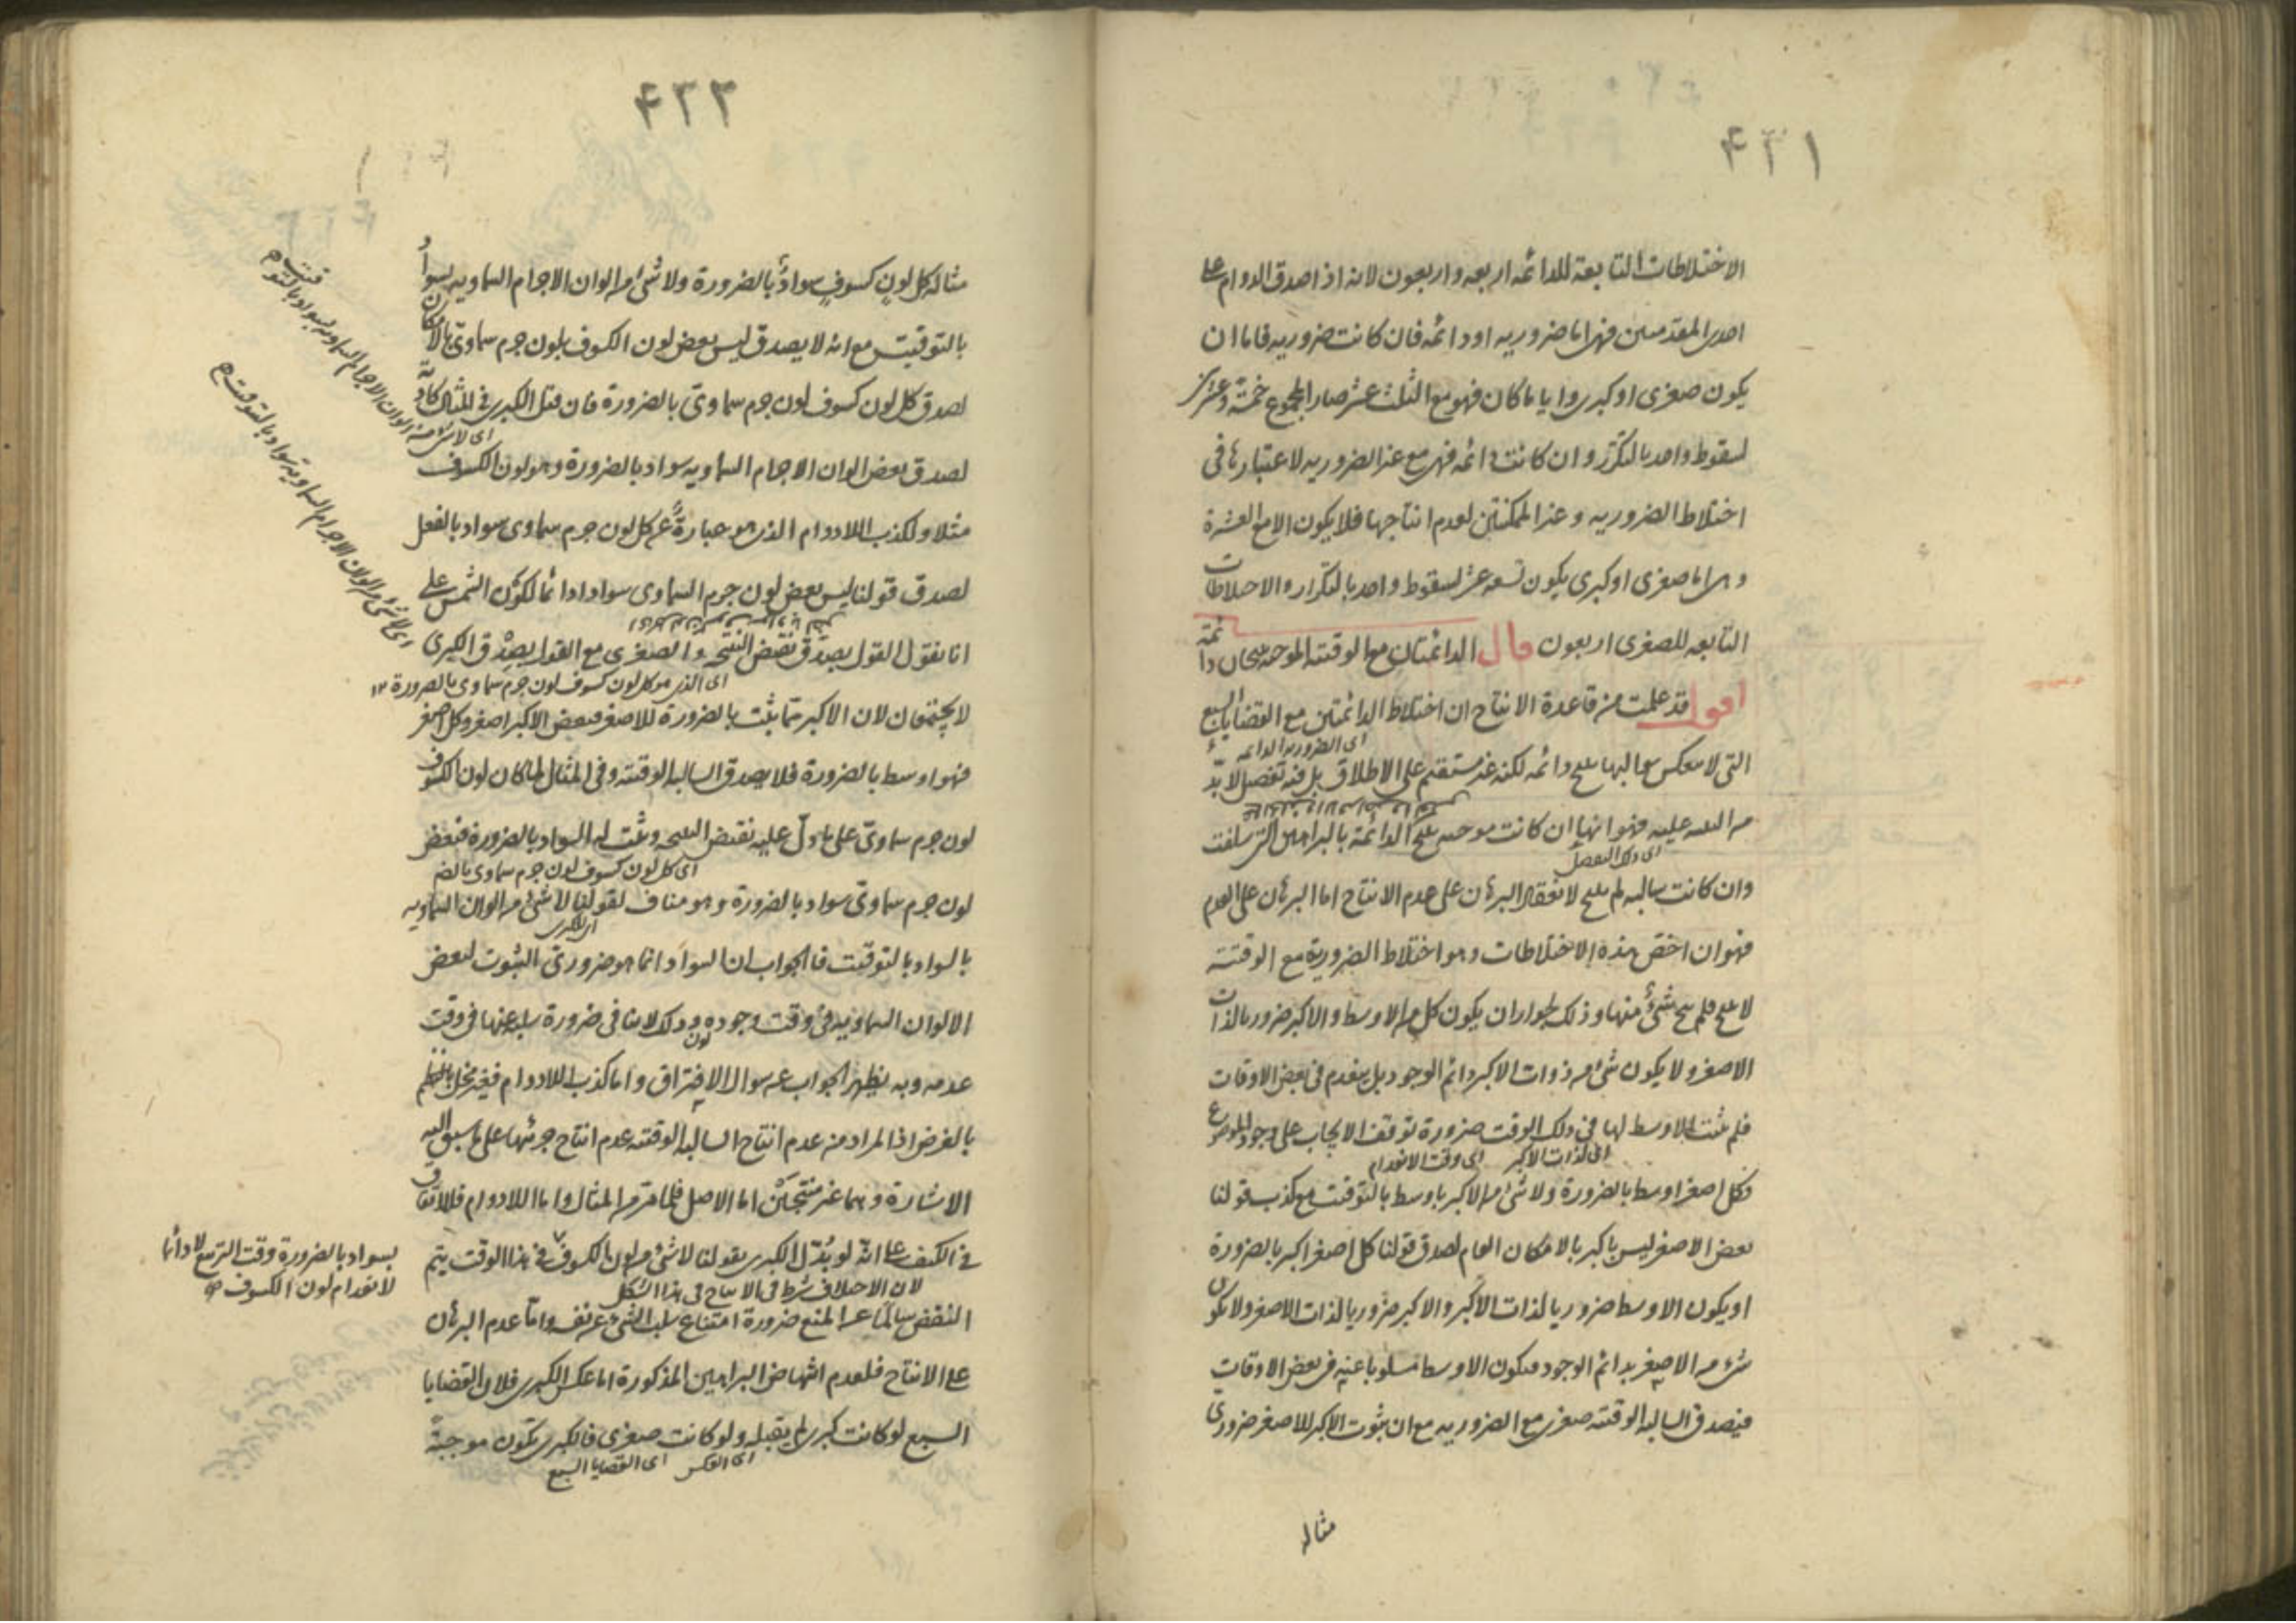 ۴۲۱
الاختلاطات التابعة للدائمه اربعه واربعون لانه اذا صدق الدوام على
احدى المقدمتين فهى اما ضروريه او دائمه فان كانت ضروريه فاما ان
يكون صغرى او كبرى وايا ما كان فهو مع الثلث عشر صار المجموع خمسة وعشرين
لسقوط واحد بالتكرر وان كانت دائمه فهى مع غير الضروريه لاعتبارها فى
اختلاط الضروريه وغير الممكنتين لعدم انتاجها فلا يكون الا مع العشرة
وهى اما صغرى او كبرى يكون تسعه عشر لسقوط واحد بالتكرار والاختلاطات
التابعه للصغرى اربعون قال الدائمتان مع الوقتيه الموجبه ينتجان دائمة
اقول قد علمت من قاعدة الانتاج ان اختلاط الدائمتين مع القضايا السبع
اى الضروريه الدائمه
التى لا تنعكس سوالبها ينتج دائمه لكنه غير مستقيم على الاطلاق بل فيه تفصيل لا بد
من التنبيه عليه فهو انها ان كانت موجبه ينتج الدائمة بالبراهين التى سلفت
اى ذلك التفصيل
وان كانت سالبه لم ينتج لانعقاد البرهان على عدم الانتاج اما البرهان على العدم
فهو ان اخص هذه الاختلاطات وهو اختلاط الضرورية مع الوقتيه
لا ينتج فلم ينتج شئ منها وذلك لجواز ان يكون كل من الاوسط والاكبر ضروريا لذات
الاصغر ولا يكون شئ من ذوات الاكبر دائم الوجود بل ينعدم فى بعض الاوقات
فلم يثبت الاوسط لها فى ذلك الوقت ضرورة توقف الايجاب على وجود الموضوع
اى لذات الاكبر اى وقت الانعدام
فكل اصغر اوسط بالضرورة ولا شئ من الاكبر باوسط بالتوقيت مع كذب قولنا
بعض الاصغر ليس باكبر بالامكان العام لصدق قولنا كل اصغر اكبر بالضرورة
او يكون الاوسط ضروريا لذات الاكبر والاكبر ضروريا لذات الاصغر ولا يكون
شئ من الاصغر بدائم الوجود فيكون الاوسط مسلوبا عنه فى بعض الاوقات
فيصدق السالبه الوقتيه صغرى مع الضروريه مع ان ثبوت الاكبر للاصغر ضرورى
مثاله
۴۲۲
مثاله كل لون كسوف سواد بالضرورة ولا شئ من الوان الاجرام السماويه بسواد
بالتوقيت مع انه لا يصدق ليس بعض لون الكسوف بلون جرم سماوى بالامكان
لصدق كل لون كسوف لون جرم سماوى بالضرورة فان قيل الكبرى فى المثال كاذبة
لصدق بعض الوان الاجرام السماويه سواد بالضرورة وهو لون الكسوف
مثلا ولكذب اللادوام الذى هو عبارة عن كل لون جرم سماوى سواد بالفعل
لصدق قولنا ليس بعض لون جرم السماوى سوادا دائما لكون الشمس على
انا نقول القول بصدق نقيض النتيجه والصغرى مع القول بصدق الكبرى
اى الذى هو كل لون كسوف لون جرم سماوى بالضرورة ١٢
لا يجتمعان لان الاكبر متى يثبت بالضرورة للاصغر فبعض الاكبر اصغر وكل اصغر
فهو اوسط بالضرورة فلا يصدق السالبه الوقتيه وفى المثال لما كان لون الكسوف
لون جرم سماوى على ما دل عليه نقيض النتيجه وثبت له السواد بالضرورة فبعض
اى كل لون كسوف لون جرم سماوى بالضر
لون جرم سماوى سواد بالضرورة وهو مناف لقولنا لا شئ من الوان السماويه
اى الكبرى
بالسواد بالتوقيت فالجواب ان السواد انما هو ضرورى الثبوت لبعض
الالوان السماويه فى وقت وجوده وذلك لا ينافى ضرورة سلبه عنها فى وقت
عدمه وبه يظهر الجواب عن سوال الافتراق واما كذب اللادوام فغير مخل
بالغرض اذ المراد من عدم انتاج السالبه الوقتيه عدم انتاج جزئيها على ما سبق اليه
الاشارة وهما غير منتجين اما الاصل فلما مر من المثال واما اللادوام فللاتفاق
فى الكيف على انه لو بدل الكبرى بقولنا لا شئ من لون الكسوف فى هذا الوقت يتم
لان الاختلاف شرط فى الانتاج فى هذا الشكل
النقض سالما عن المنع ضرورة امتناع سلب الشئ عن نفسه واما عدم البرهان
على الانتاج فلعدم انتهاض البراهين المذكورة اما عكس الكبرى فلان القضايا
السبع لو كانت كبرى لم يقبله ولو كانت صغرى فالكبرى يكون موجبة
اى العكس اى القضايا السبع
اى لا شئ من الوان الاجرام السماويه بسواد بالتوقيت
اى لا شئ من الوان الاجرام السماوية بسواد بالتوقيت
بسواد بالضرورة وقت التربيع لا دائما
لانعدام لون الكسوف